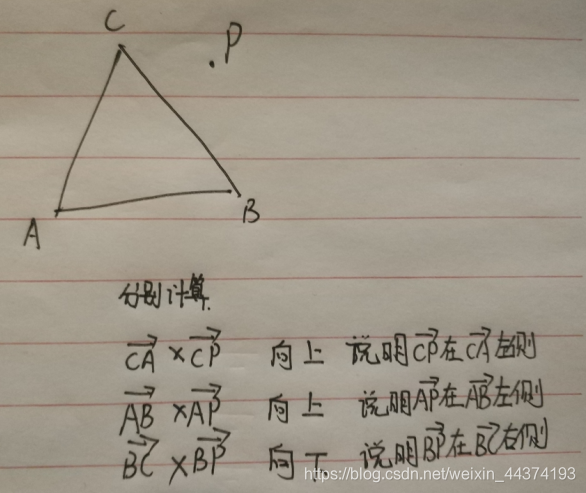 C
P
A
B
分别计算
CA × CP 向上 说明CP在CA左侧
AB × AP 向上 说明AP在AB左侧
BC × BP 向下 说明BP在BC右侧
https://blog.csdn.net/weixin_44374193